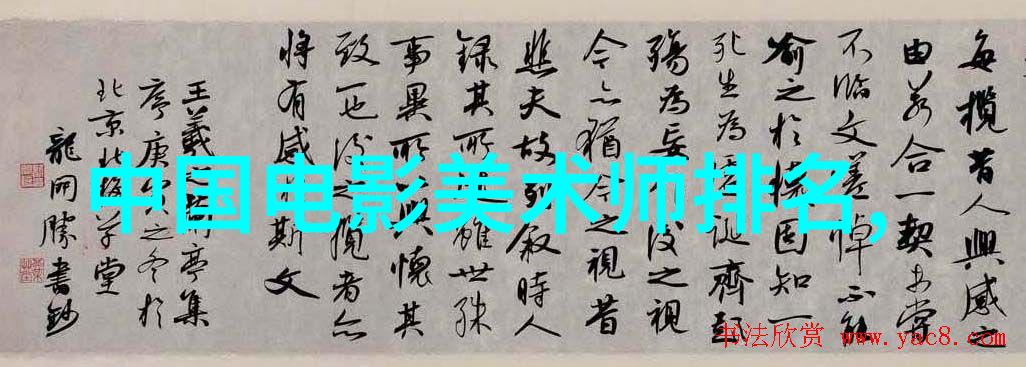 每攬昔人興感之
由若合一契未嘗
不臨文嗟悼不能
喻之於懷固知一
死生為誕齊彭
殤為妄後之視
今亦猶今之視昔
悲夫故列敘時人
錄其所雖世殊
事異所以興懷其
致一也後之攬者亦
將有感斯文
王羲亭集
序庚之冬於
北京北草堂
龍開勝書鈔
中国电影美术师排名,
书法欣赏 www.yac8.com